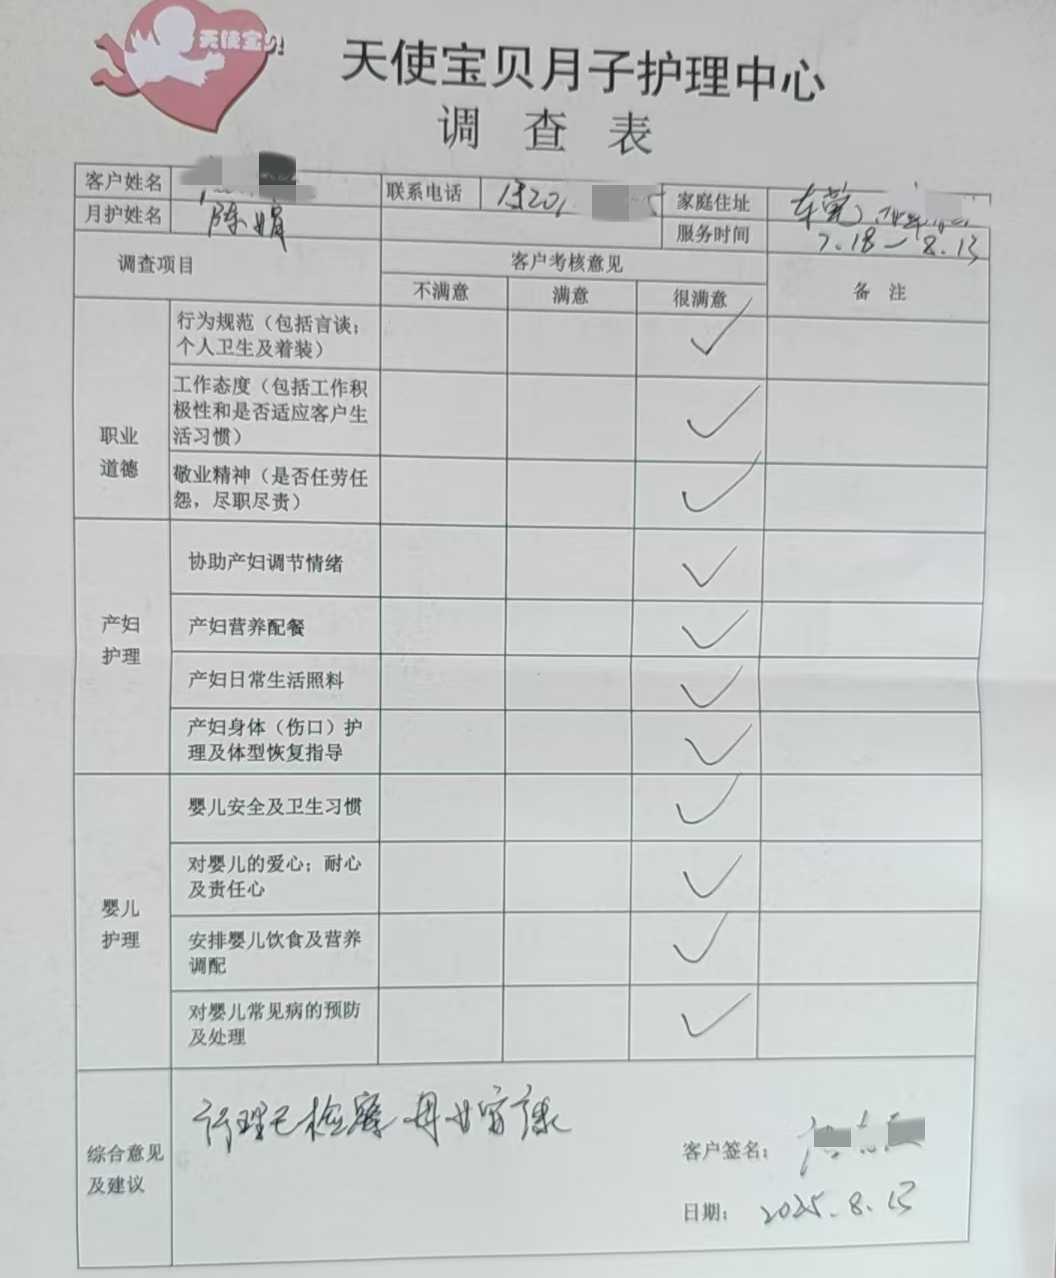 天使宝贝
天使宝贝月子护理中心
调查表
客户姓名 联系电话 家庭住址 东莞
月护姓名 陈娟 服务时间 7.18-8.13
调查项目 客户考核意见 备注
不满意 满意 很满意
职业道德
行为规范（包括言谈；
个人卫生及着装）
工作态度（包括工作积
极性和是否适应客户生
活习惯）
敬业精神（是否任劳任
怨，尽职尽责）
产妇护理
协助产妇调节情绪
产妇营养配餐
产妇日常生活照料
产妇身体（伤口）护
理及体型恢复指导
婴儿护理
婴儿安全及卫生习惯
对婴儿的爱心；耐心
及责任心
安排婴儿饮食及营养
调配
对婴儿常见病的预防
及处理
综合意见
及建议
客户签名：
日期： 2025.8.13